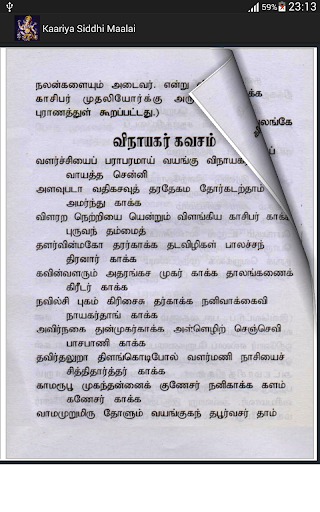 23:13
Kaariya Siddhi Maalai
நலன்களையும் அடைவர். என்று
காசிபர் முதலியோர்க்கு அரு
புராணத்துள் கூறப்பட்டது.)
லங்கே
விநாயகர் கவசம்
வளர்ச்சியைப் பராபரமாய் வயங்கு விநாயக
வாயத்த சென்னி
அளவுபடா வதிகசவுந் தரதேகம தோர்கடற்தாம்
அமர்ந்து காக்க
விளரற நெற்றியை யென்றும் விளங்கிய காசிபர் காக்க
புருவந் தம்மைத்
தளர்வின்மகோ தரர்காக்க தடவிழிகள் பாலச்சந்
திரனார் காக்க
கவின்வளரும் அதரங்கச முகர் காக்க தாலங்கணைக்
கிரீடர் காக்க
நவில்சி புகம் கிரிசைசு தர்காக்க நனிவாக்கைவி
நாயகர்தாங் காக்க
அவிர்நகை துன்முகர்காக்க அள்ளெழிற் செஞ்செவி
பாசபாணி காக்க
தவிர்தலுறா திளங்கொடிபோல் வளர்மணி நாசியைச்
சித்திதார்த்தர் காக்க
காமரூபு முகந்தன்னைக் குணேசர் நனிகாக்க களம்
கணேசர் காக்க
வாமமுறுமிரு தோளும் வயங்குகந் தபூர்வசர் தாம்